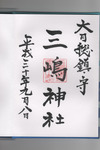 大日総鎮守
三嶋神社
平成三十年九月八日